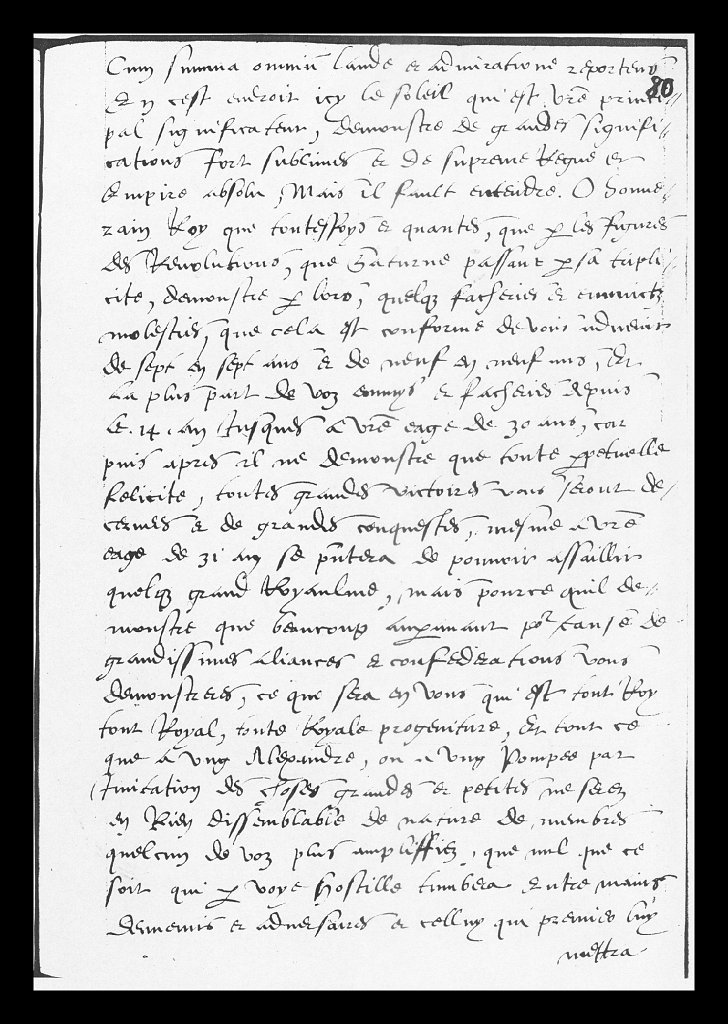 Cum summa omnium laude et admiratione reporteur
80
En cest endroit icy le soleil qui est vre princi-
pal significateur, demonstre de grandes signifi-
cations fort sublimes et de supreme Regne et
Empire absolu, Mais il fault entendre. O Souue-
rain Roy que touteffoys et quantes, que p les figures
des Reuolutions, que Saturne passant p sa tripli-
cite, demonstre p lors, quelqz facheries et
molesties, que cela est conforme de vous aduenir
de sept en sept ans et de neuf en neuf ans, Et
La plus part de voz ennuys et facheries depuis
le .14. an Jusques a vre eage de 30 ans, car
puis apres il ne demonstre que toute ppetuelle
felicite, toutes grandes victoires vous seront de-
cernees et de grandes conquestes, mesme a vre
eage de 31 an se pntera de pouuoir assaillir
quelqz grand Royaulme, mais pource quil de-
monstre que beaucoup po cause de
grandissimes aliances et confederations vous
demonstreres, ce que sera en vous qui est tout Roy
tout Royal, toute Royale progeniture, Et tout ce
que a vng Alexandre, ou a vng Pompee par
Imitation des choses grandes et petites ne serez
en Rien dissemblable de nature de membres
quelcun de voz plus amplissiez, que nul que ce
soit qui p voye hostille tumbera Entre mains
dennemis et aduersaires et celluy qui premier luy
mettra